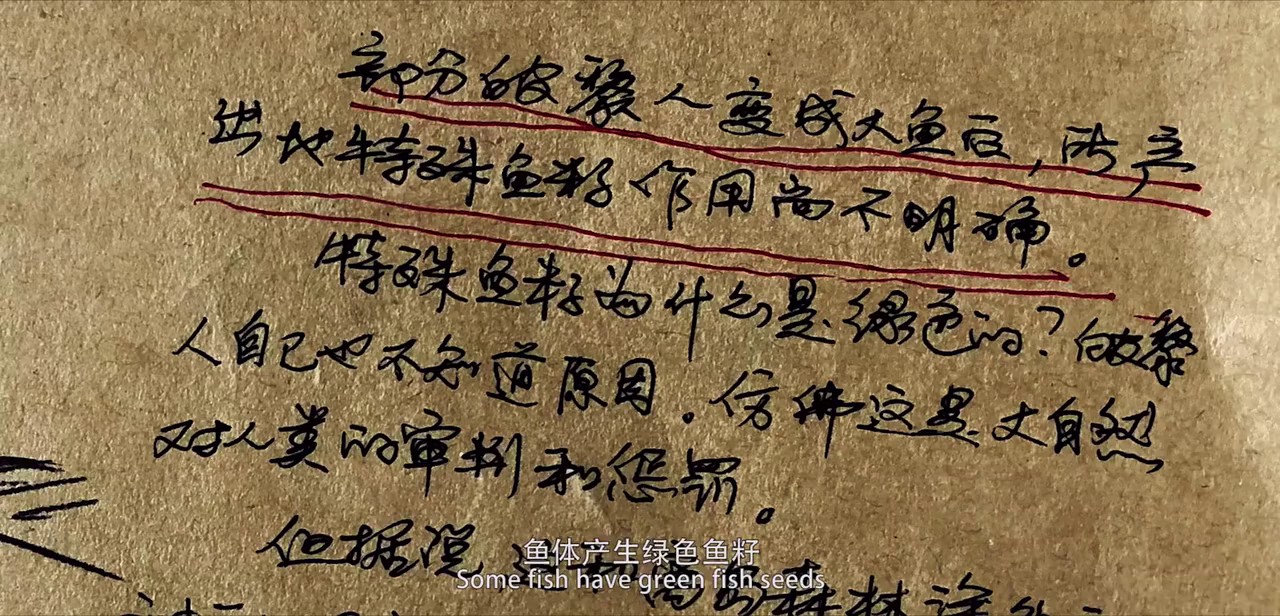 部分人变成大鱼后，所产
出地特殊鱼籽作用尚不明确。
特殊鱼籽为什么是绿色的？
人自己也不知道原因。仿佛这是大自然
对人类的审判和惩罚。
但据说岛森林
鱼体产生绿色鱼籽
Some fish have green fish seeds